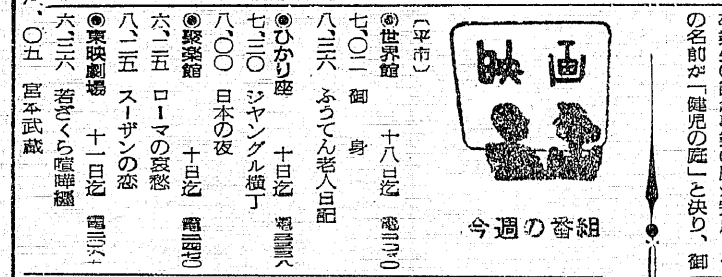 の名前が「健児の庭」と決り、御
映画
今週の番組
〔平市〕
◉世界館 十八日迄
七、〇二 御身
八、三六 ふうてん老人日記
◉ひかり座 十日迄
七、三〇 ジャングル横丁
八、〇〇 日本の夜
◉聚楽館 十日迄
六、一五 ローマの哀愁
八、二五 スーザンの恋
◉東映劇場 十一日迄
六、三六 若ざくら喧嘩纏
八、〇五 宮本武蔵